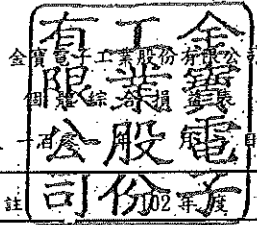 金寶電子工業股份有限公司
個體綜合損益表
註 02年度
金寶電子
工業股份
有限公司